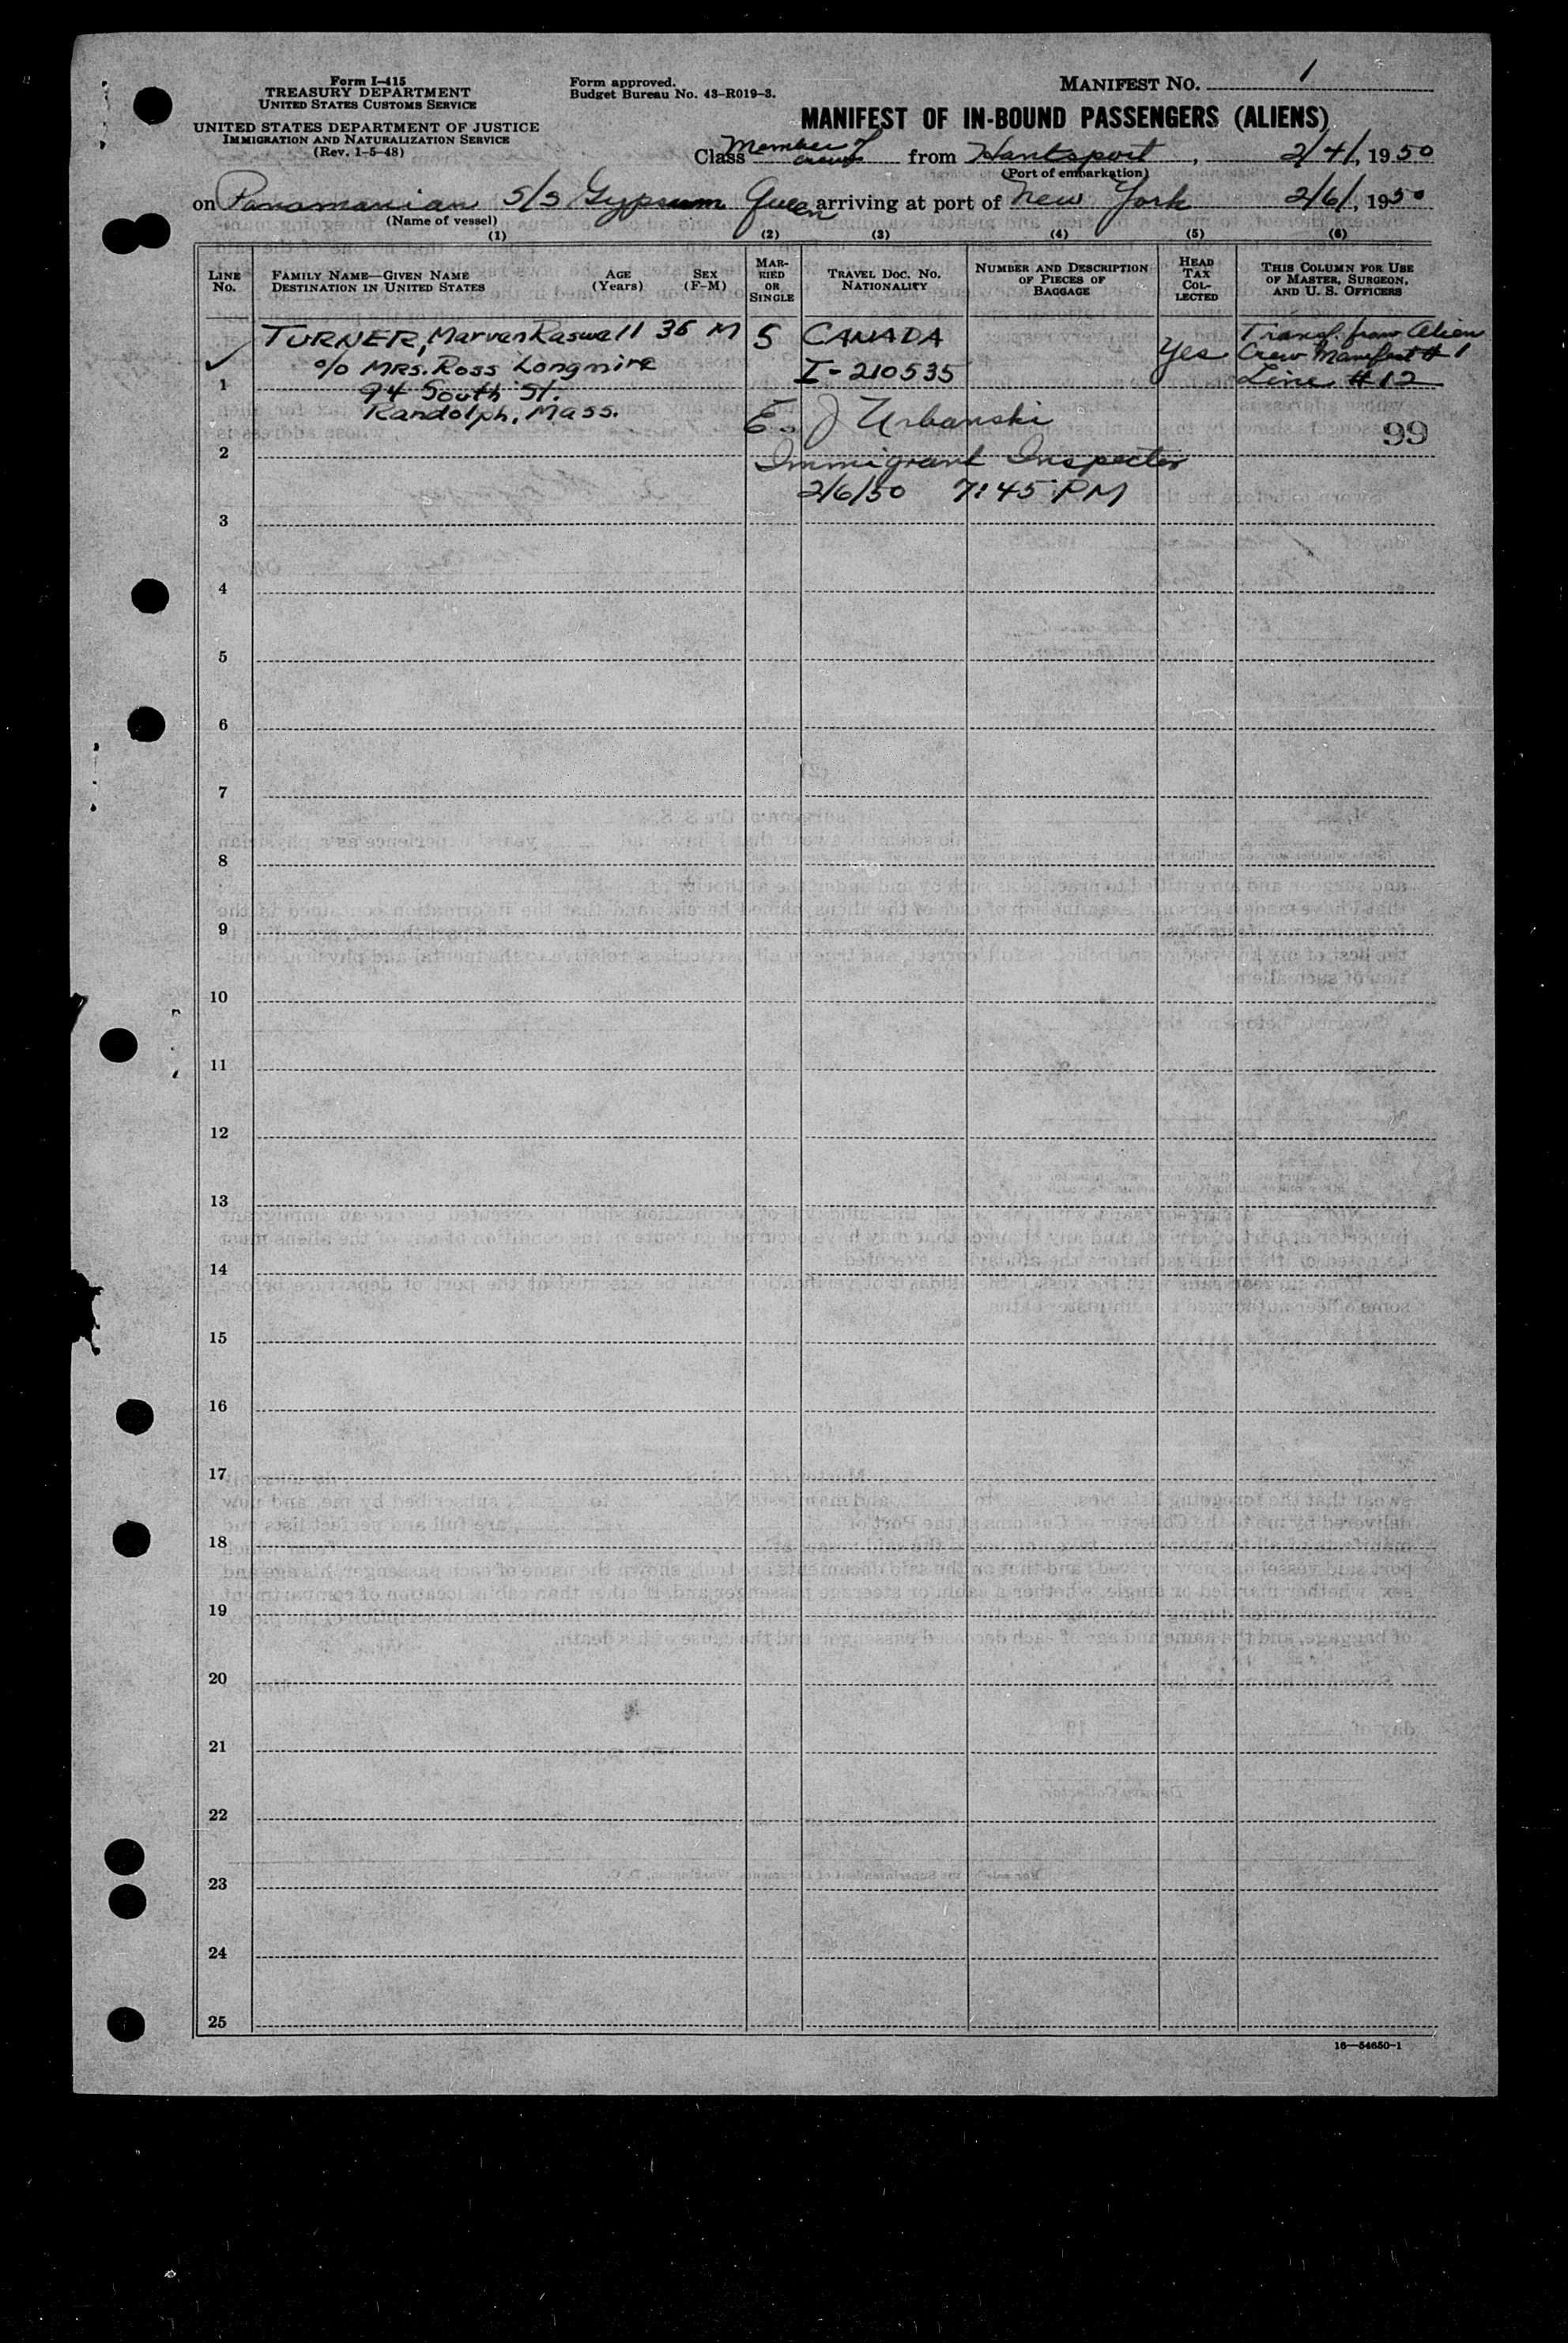 Form I-415
TREASURY DEPARTMENT
UNITED STATES CUSTOMS SERVICE
UNITED STATES DEPARTMENT OF JUSTICE
IMMIGRATION AND NATURALIZATION SERVICE
(Rev. 1-5-48)
Form approved.
Budget Bureau No. 43-R019-3.
MANIFEST NO. 1
MANIFEST OF IN-BOUND PASSENGERS (ALIENS)
Class Member of Crew from Hantsport, 2/4/, 1950
(Port of embarkation)
on Panamanian S/S Gypsum Queen arriving at port of New York 2/6/, 1950
(Name of vessel)
(1) (2) (3) (4) (5) (6)
LINE No.
FAMILY NAME—GIVEN NAME
DESTINATION IN UNITED STATES
AGE (Years)
SEX (F-M)
MARRIED OR SINGLE
TRAVEL DOC. NO.
NATIONALITY
NUMBER AND DESCRIPTION OF PIECES OF BAGGAGE
HEAD TAX COLLECTED
THIS COLUMN FOR USE OF MASTER, SURGEON, AND U. S. OFFICERS
TURNER, Marven 36 M S CANADA Yes Transf. from Alien
c/o MRS. Ross Longmire I-210535 Crew Manifest # 1
1 94 South St. Line # 12
Randolph, Mass.
E. J Urbanski
99
2 Immigrant Inspector
2/6/50 7:45 PM
3
4
5
6
7
8
9
10
11
12
13
14
15
16
17
18
19
20
21
22
23
24
25
16—54650-1